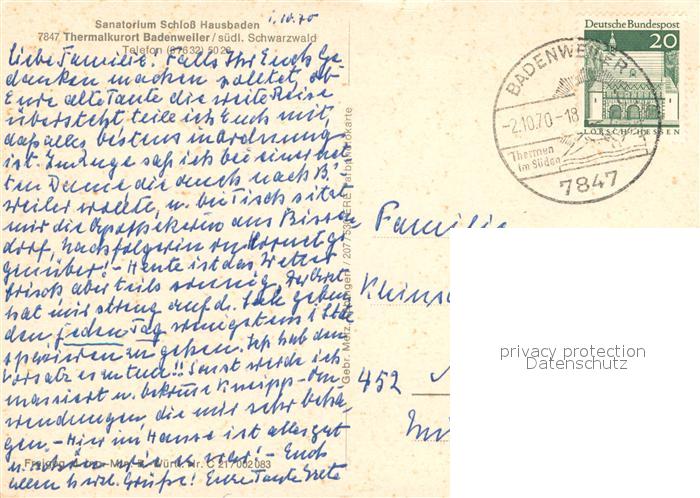 Sanatorium Schloß Hausbaden
7847 Thermalkurort Badenweiler / südl. Schwarzwald
Telefon (07632) 5028
1.10.70
Liebe Familie. Falls Ihr Euch Ge-
danken machen solltet, ob
Eure alte Tante die weite Reise
übersteht teile ich Euch mit,
daß alles bestens in Ordnung
ist. Im Zuge saß ich bei einer net-
ten Dame die auch nach B.
weiler wollte, u. bei Tisch sitzt
mir die Apothekerin aus Bissen-
dorf, Nachfolgerin von
genüber! - Heute ist das Wetter
frisch aber teils sonnig. Der Arzt
hat mir streng auf d. gebun-
den jeden Tag wenigstens 1 Std.
spazieren zu gehen. Ich hab den
Vorsatz es zu tun!! Sonst werde ich
massiert u. bekomme Kneipp-An-
wendungen, die mir sehr beha-
gen - Hier im Hause ist alles gut
u. schön wie war! - Euch
allen herzl. Grüße! Eure Tante Grete
Gebr. Metz, Tübingen
Farbfotokarte
Deutsche Bundespost
20
LORSCH/HESSEN
BADENWEILER
-2.10.70-18
Thermen
im Süden
7847
Familie
452
privacy protection
Datenschutz